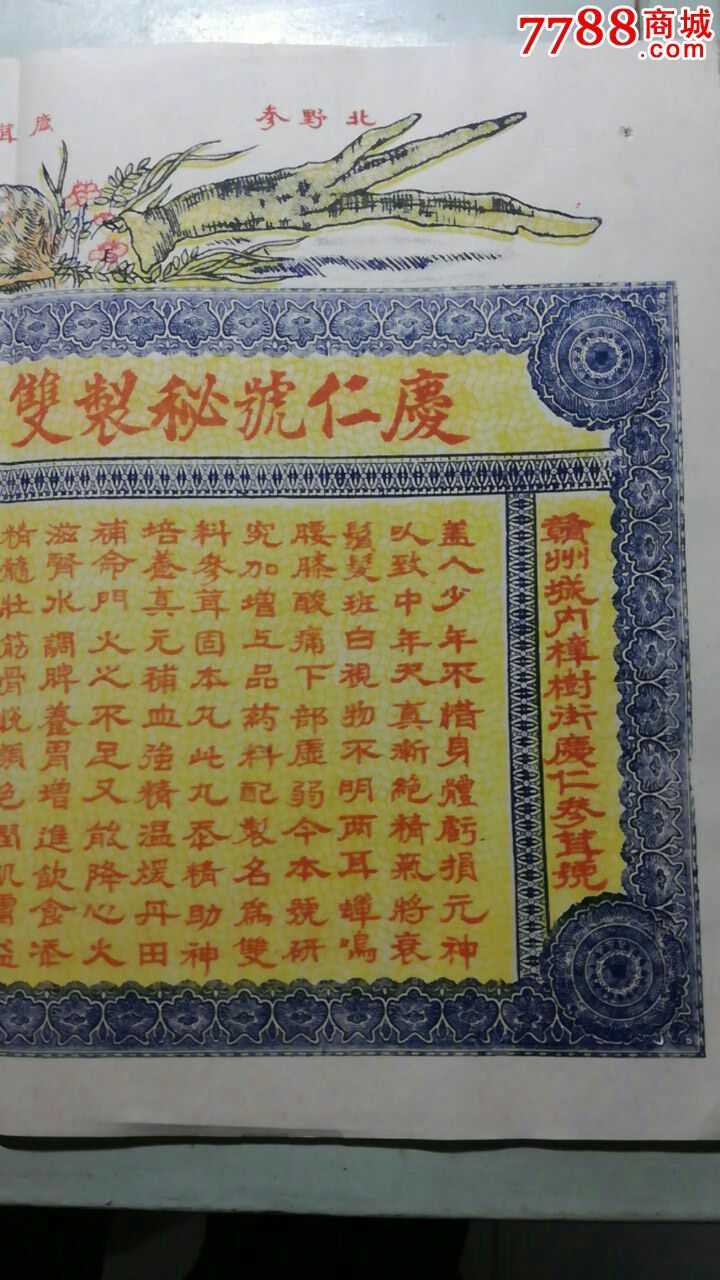 7788商城
.com
北野参
慶仁號秘製雙
贛州城內樟樹街慶仁參茸號
盖人少年不惜身體虧損元神
以致中年天真漸絕精氣將衰
鬚髮班白視物不明兩耳蟬鳴
腰膝酸痛下部虛弱今本號研
究加增上品葯料配製名為雙
料參茸固本丸此丸泰精助神
培養真元補血強精温煖丹田
補命門火心不足又能降心火
滋腎水調脾養胃增進飲食添
精髓壯筋骨悅顏色潤肌膚益